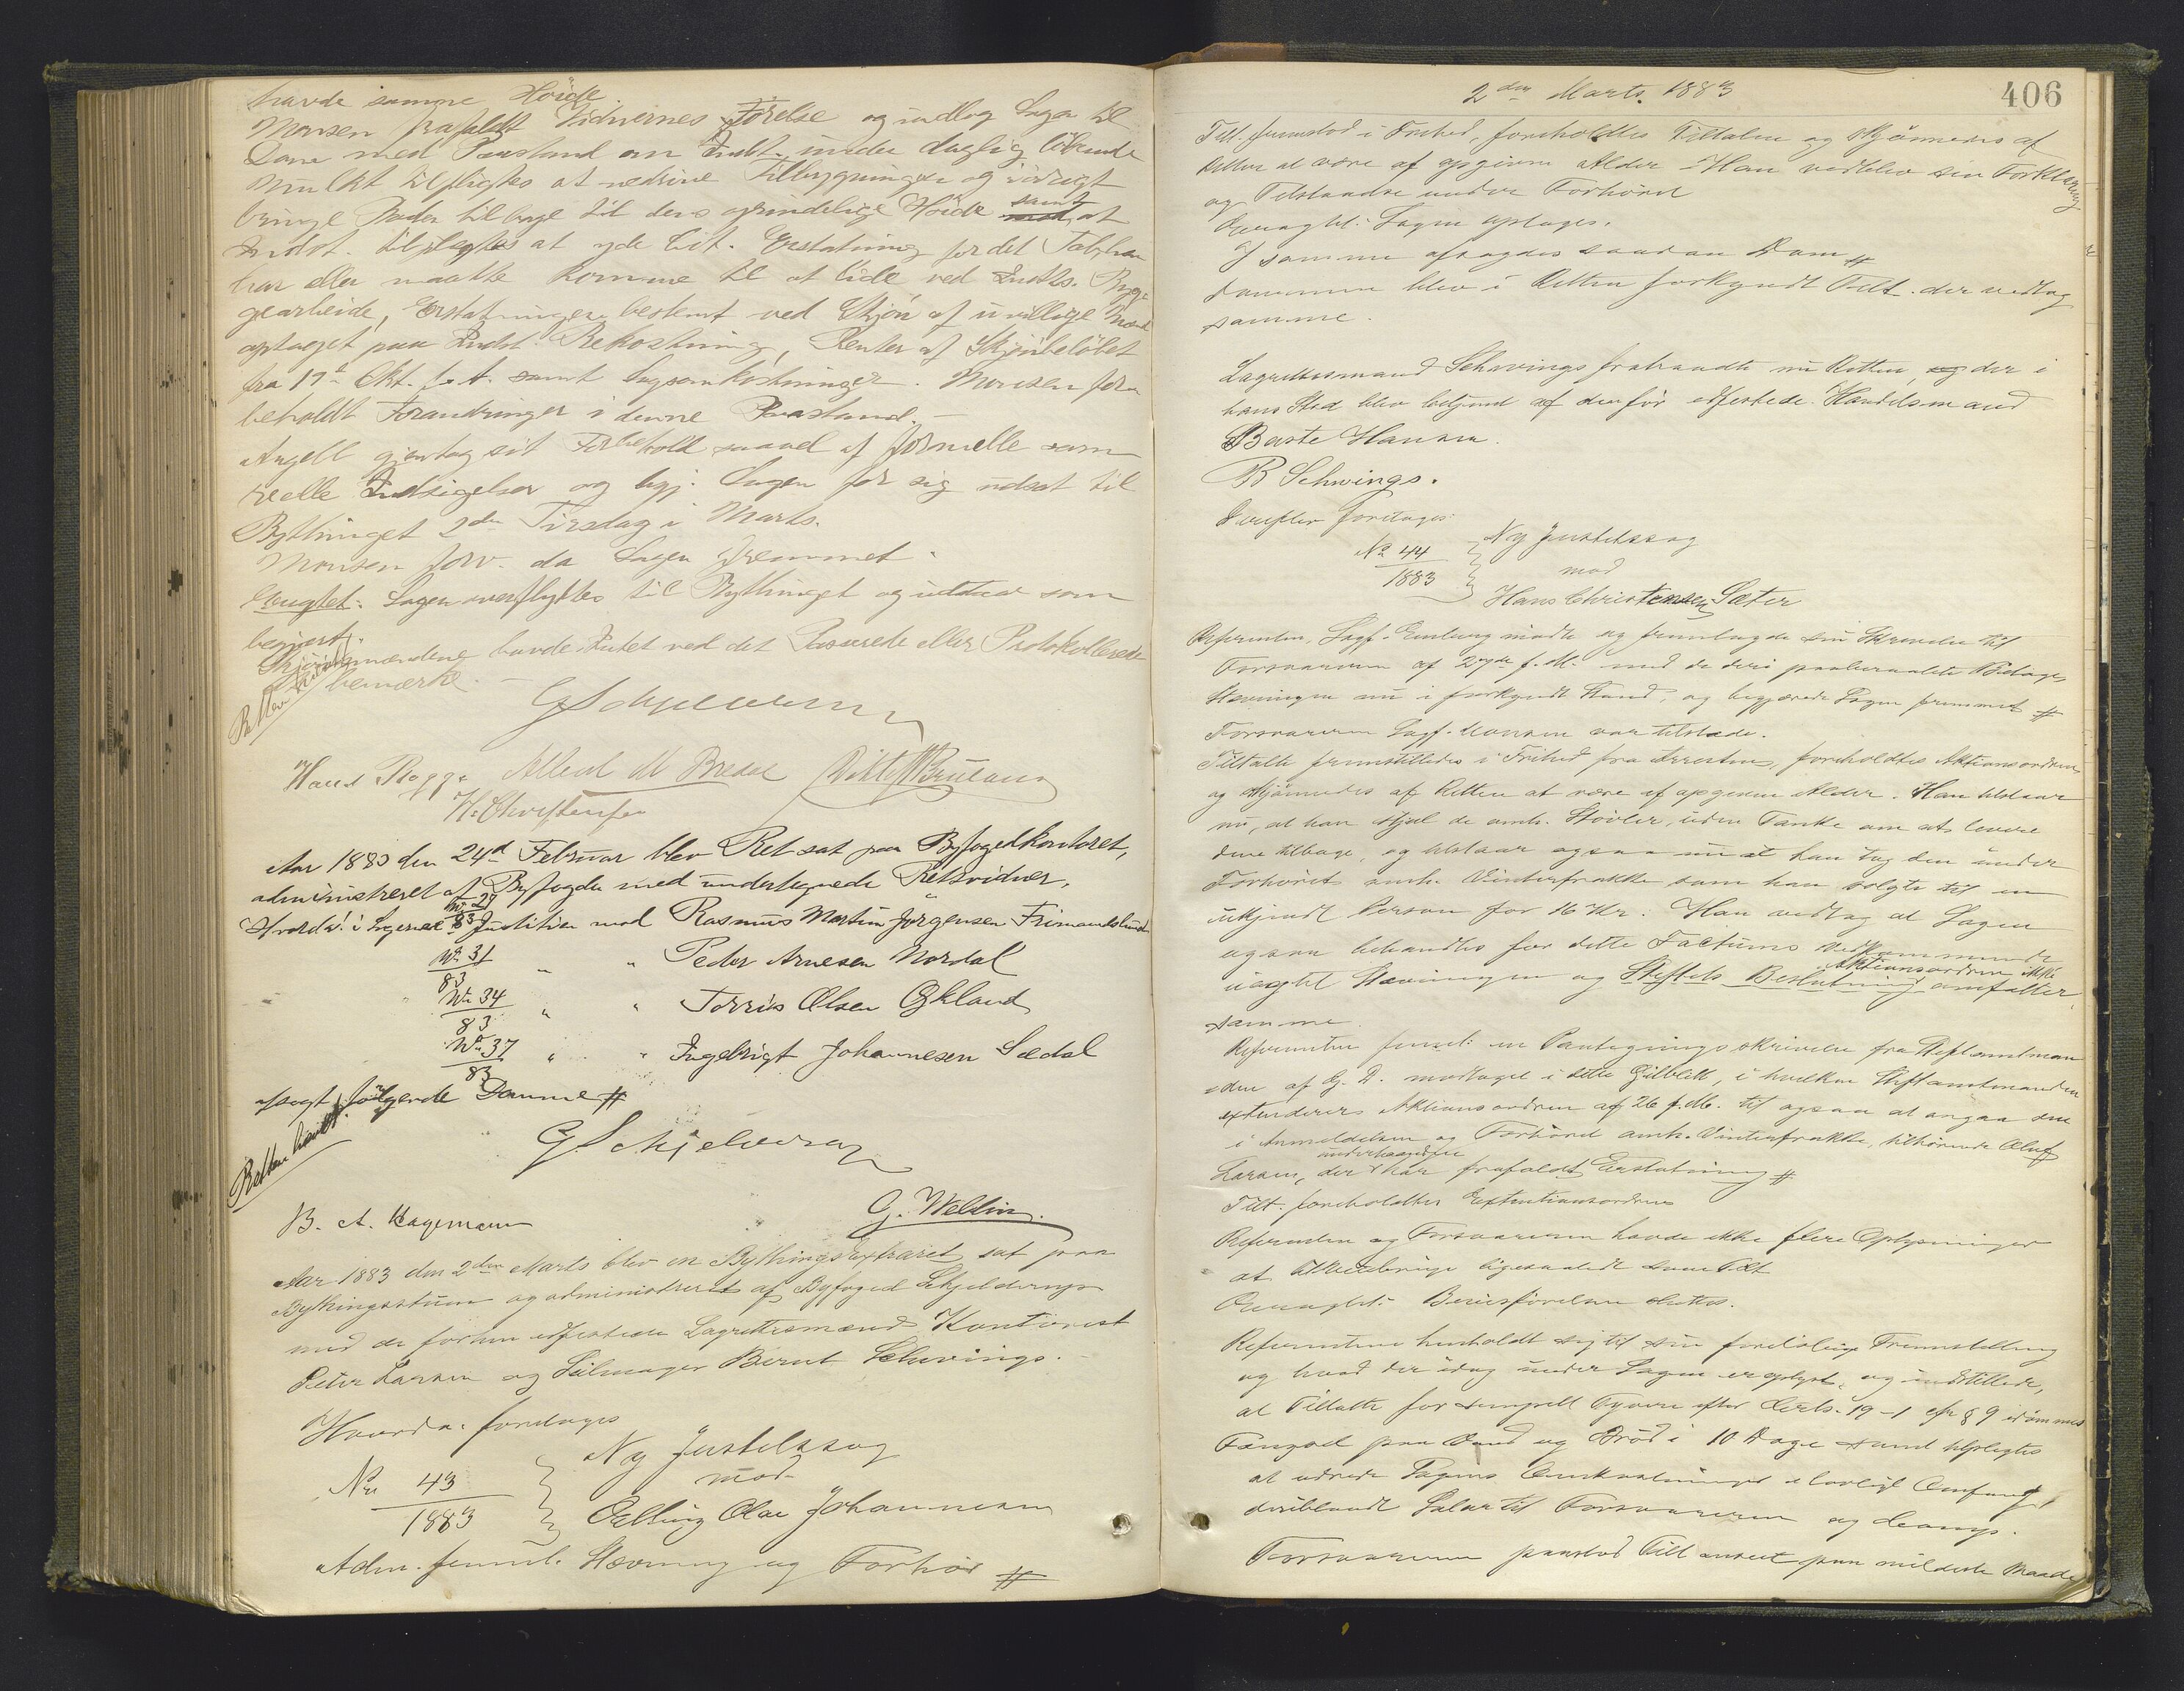 havde samme Høide.
Monsen frafaldt Vidnernes Førelse og indlog Sagen til
Dom med Paastand om Indst. under daglig løbende
Mulkt tilpligtes at nedrive Tilbygningen og iøvrigt
bringe Huset tilbage til dens oprindelige Høide samt at
Indst. tilpligtes at yde Cit. Erstatning for det Tab han
har eller maatte komme til at lide ved Indsts. Byg-
gearbeide, Erstatningen bestemt ved Skjøn af uvillige Mænd
optaget paa Indst. Bekostning, Renter af Skjønbeløbet
fra 17de Okt. f. A. samt Sagsomkostninger. Monsen for-
beholdt Forandringer i denne Paastand.-
Angell gjentog sit Forbehold saavel af formelle som
reelle Indsigelser og begj. Sagen for sig udsat til
Bythinget 2den Tirsdag i Marts.
Monsen forv. da Sagen fremmet.
Eragtet: Sagen overflyttes til Bythinget og udstaar som
begjært.
Skjønsmændene havde Intet ved det Passerede eller Protokollerede
at bemærke.-
Retten hævet
G Schjelderup
Hans Plogge Albert M Bredal
H. Christensen
Aar 1883 den 24de Februar blev Ret sat paa Byfogedkontoret,
administreret af Byfogden med undertegnede Retsvidner,
Hvorda: i Sagerne No 29/83 Justitien mod Rasmus Martin Jørgensen Frimandslund
No 31/83 " " Peder Arnesen Nordal
No 34/83 " " Torris Olsen Økland
No 37/83 " " Ingebrigt Johannesen Sædal
afsagt følgende Domme #
Retten hævet.
G. Schjelderup
B. A. Hagemann G. Welsin
Aar 1883 den 2den Marts blev en Bythingsextraret sat paa
Bythingsstuen og administreret af Byfoged Schjelderup
med de forhen edfæstede Lagrettesmænd Kontorist
Peter Larsen og Seilmager Bernt Schwings.-
Hvorda: foretages
No 43/1883 } Ny Justitssag
mod
Elling Olai Johannesen
Adm. freml. Stævning og Forhør #
406
2den Marts 1883
Tilt. fremstod i Frihed, foreholdtes Tiltalen og skjønnedes af
Retten at være af opgiven Alder - Han vedblev sin Forklaring
og Tilstaaelse under Forhøret
Eragtet: Sagen optages.
I samme afsagdes saadan Dom #
Dommen blev i Retten forkyndt Tilt. der vedtog
samme.
Lagrettesmand Schwings fratraadte nu Retten, og der i
hans Sted blev betjent af den før edfæstede Handelsmand
Børte Hansen.
B Schwings.
Derefter foretages:
No 44/1883 } Ny Justitssag
mod
Hans Christensen Sæter
Referenten, Sagf. Enberg mødte og fremlagde sin Skrivelse til
Forsvareren af 27de f. M. med de deri paaberaabte Bilage,
Stævningen nu i forkyndt Stand, og begjærede Sagen fremmet #
Forsvareren Sagf. Monsen var tilstede.
Tiltalte fremstilledes i Frihed fra Arresten, foreholdtes Aktionsordren
og skjønnedes af Retten at være af opgiven Alder. Han tilstaar
nu, at han stjal de omh. Støvler, uden Tanke om at levere
dem tilbage, og tilstaar ogsaa nu at han tog den under
Forhøret omh. Vinterfrakke som han solgte til en
ukjendt Person for 16 Kr. Han vedtog at Sagen
ogsaa behandles for dette Factums Vedkommende
uagtet Stævningen og Stiftets Beslutning Aktionsordren ikke omfatter
samme.
Referenten freml: en Paategningsskrivelse fra Stiftamtman-
den af G. D. modtaget i dette Øieblik, i hvilken Stiftamtmanden
extenderer Aktionsordren af 26 f. M. til ogsaa at angaa den
i Anmeldelsen og Forhøret omh. Vinterfrakke, tilhørende Oluf
Larsen, der underhaanden har frafaldt Erstatning #
Tilt. foreholdtes Extentionsordren
Referenten og Forsvareren havde ikke flere Oplysninger
at tilveiebringe ligesaalidt som Tilt.
Eragtet: Bevisførelsen sluttes.
Referenten henholdt sig til sin foreløbige Fremstilling
og hvad der idag under Sagen er oplyst, og indstillede,
at Tiltalte for simpelt Tyveri efter Crls. 19-1 cfr § 9 idømmes
Fængsel paa Vand og Brød i 10 Dage samt tilpligtes
at udrede Sagens Omkostninger i lovligt Omfang,
deriblandt Salær til Forsvareren og de[n] comp.
Forsvareren paastod Tilt anseet paa mildeste Maade